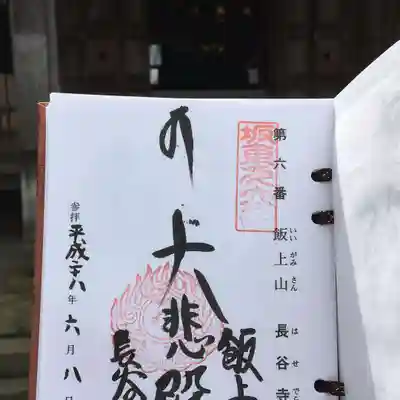 第六番 飯上山 長谷寺
いいがみさん はせでら
坂東六番
大悲殿
飯上
長谷
参拝 平成二八年六月八日